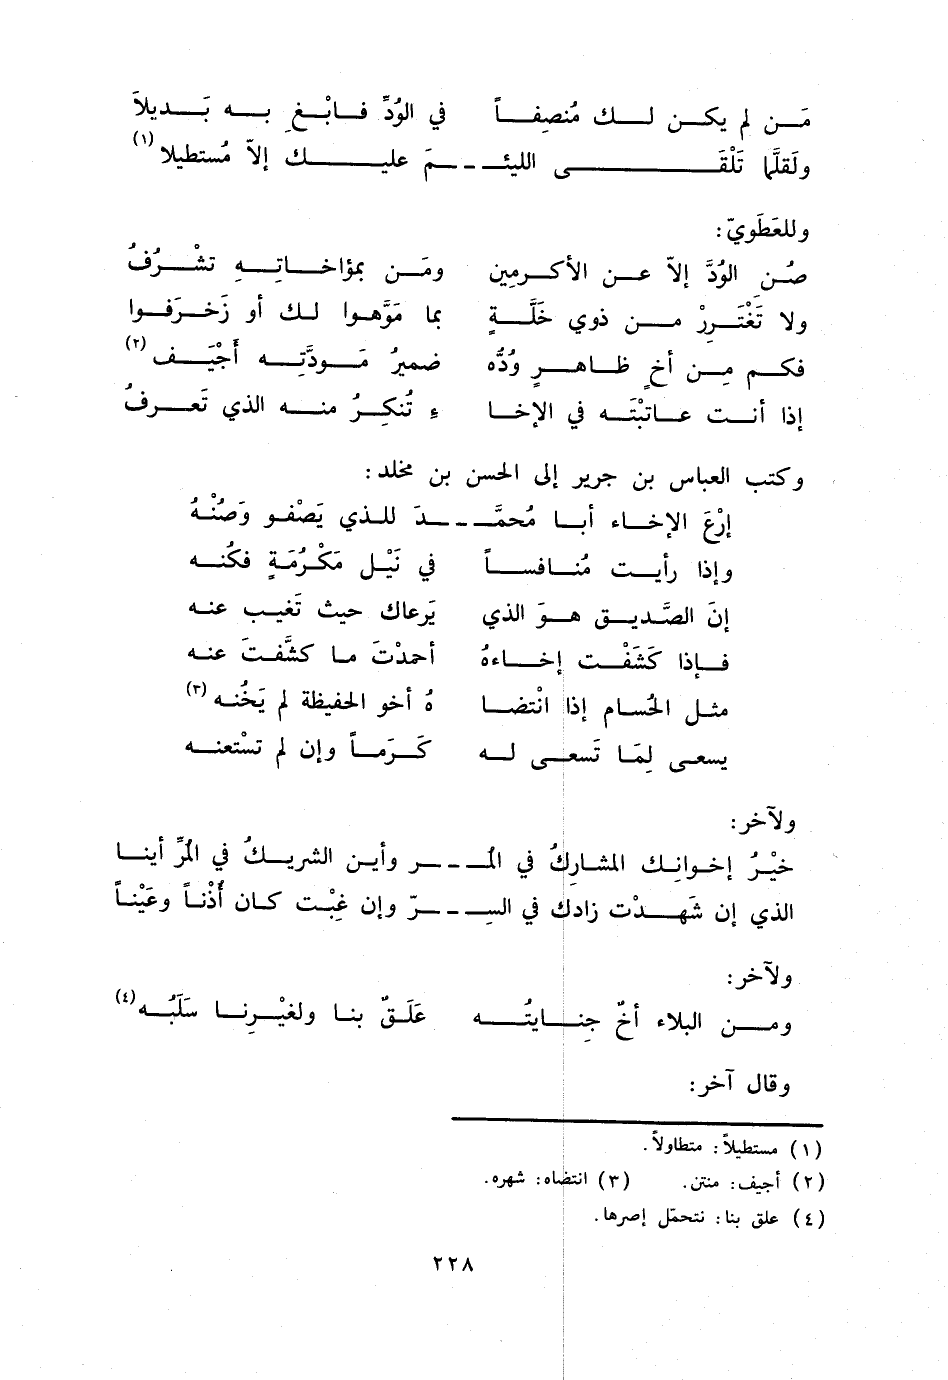 مَن لم يكن لك مُنصِفاً في الوُدِّ فابْغِ به بَديلاَ
ولَقلَّما تَلْقَى اللئيـمَ عليك إلاّ مُستطيلا (١)
وللعَطَويّ:
صُنِ الوُدَّ إلاّ عن الأكرمِين ومَن بمؤاخاتِهِ تشْرُفُ
ولا تَغْتَرِرْ من ذوي خَلَّةٍ بما مَوَّهوا لك أو زَخرَفوا
فكم مِن أخٍ ظاهرٍ وُدُّه ضميرُ مَودَّتِه أَجْيَف (٢)
إذا أنت عاتبْتَه في الإخا ءِ تُنكِرُ منه الذي تَعرفُ
وكتب العباس بن جرير إلى الحسن بن مخلد:
إرْعَ الإخاء أبا مُحمَّـدَ للذي يَصْفو وَصُنْهُ
وإذا رأيت مُنافساً في نَيْل مَكْرُمَةٍ فكُنه
إنَ الصَّديق هوَ الذي يَرعاك حيث تَغيب عنه
فإذا كَشَفْت إخاءهُ أحمدْتَ ما كشَّفتَ عنه
مثل الحُسام إذا انْتضا هُ أخو الحفيظة لم يَخُنه (٣)
يسعى لِمَا تَسعى له كَرَماً وإن لم تسْتعنه
ولآخر:
خيْرُ إخوانِك المشاركُ في المُـر وأين الشريكُ في المُرِّ أينا
الذي إن شَهدْت زادك في السِـرّ وإن غِبْت كان أُذْناً وعَيْناً
ولآخر:
ومن البلاء أخٌ جِنايتُه عَلَقٌ بنا ولغيْرِنا سَلَبُه (٤)
وقال آخر:
(١) مستطيلاً: متطاولاً.
(٢) أجيف: منتن. (٣) انتضاه: شهره.
(٤) علق بنا: نتحمّل إصرها.
٢٢٨